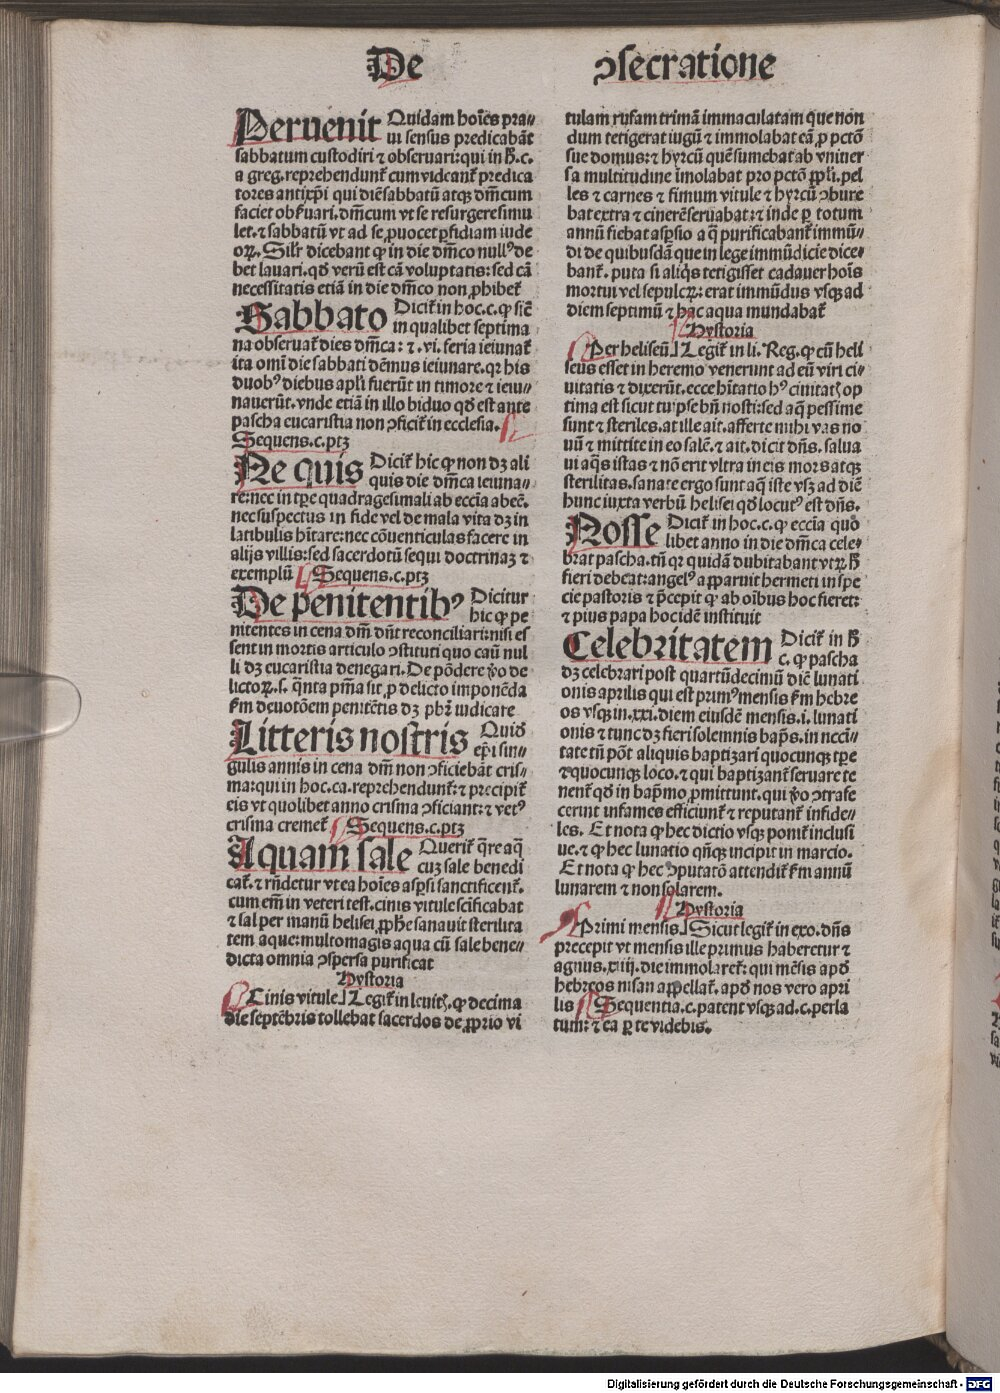 De ↄsecratione
Peruenit Quidam hoīes pra⸗
ui sensus predicabāt
sabbatum custodiri ⁊ obseruari: qui in h̄.c.
a greg. reprehendunt᷑ cum videant᷑ predica
tores antixp̄i qui diē sabbatū atqꝫ dn̄icum
faciet obẜuari. dn̄icum vt se resurgere simu
let. ⁊ sabbatū vt ad se ꝓuocet ꝑfidiam iude
oꝝ. Silr̄ dicebant ꝙ in die dn̄ico nullꝰ de
bet lauari. qd̄ verū est cā voluptatis: sed cā
necessitatis etiā in die dn̄ico non ꝓhibet᷑
Sabbato Dicit᷑ in hoc.c. ꝙ sic̄
in qualibet septima
na obseruat᷑ dies dn̄ica: ⁊ .vi. feria ieiunat᷑
ita omī die sabbati dēmus ieiunare. qꝛ his
duobꝰ diebus apl̄i fuerūt in timore ⁊ ieiu⸗
nauerūt. vnde etiā in illo biduo qd̄ est ante
pascha eucaristia non ↄficit᷑ in ecclesia.
Sequens.c.ptꝫ
Ne quis Dicit᷑ hic ꝙ non dꝫ ali
quis die dn̄ica ieiuna⸗
re: nec in tꝑe quadragesimali ab eccīa abeē.
nec suspectus in fide vel de mala vita dꝫ in
latibulis hītare: nec cōuenticulas facere in
alijs villis: sed sacerdotū sequi doctrinaꝫ ⁊
exemplū Sequens.c.ptꝫ
De penitentibꝰ Dicitur
hic ꝙ pe
nitentes in cena dn̄i dn̄t reconciliari: nisi es
sent in mortis articulo ↄstituti quo casū nul
li dꝫ eucaristia denegari. De pōdere v̄o de
lictoꝝ.s. q̄nta pn̄ia sit ꝓ delicto imponēda
ẜm deuotōem penitētis dꝫ pbr̄ iudicare
Litteris nostris Quid
ep̄i sin⸗
gulis annis in cena dn̄i non ↄficiebāt cris⸗
ma: qui in hoc.ca. reprehendunt᷑: ⁊ precipit᷑
eis vt quolibet anno crisma ↄficiant: ⁊ vetꝰ
crisma cremet᷑ Sequens.c.ptꝫ
Aquam sale Querit᷑ q̄re aq̄
cuꝫ sale benedi
cat᷑. ⁊ rn̄detur vt ea hoīes asꝑsi sanctificent᷑.
cum em̄ in veteri test. cinis vitule sc̄ificabat
⁊ sal per manū helisei ꝓph̄e sanauit sterilita
tem aque: multomagis aqua cū sale bene⸗
dicta omnia ↄspersa purificat
Hystoria
Cinis vitule] Legit᷑ in leuitꝭ. ꝙ decima
die septēbris tollebat sacerdos de ꝓprio vi
tulam rufam trimā immaculatam que non
dum tetigerat iugū ⁊ immolabat eā ꝓ pctō
sue domus: ⁊ hyrcū quē sumebat ab vniuer
sa multitudine īmolabat pro pctō ꝓpli. pel
les ⁊ carnes ⁊ fimum vitule ⁊ hyrcū ↄbure
bat extra ⁊ cinerē seruabat: ⁊ inde ꝑ totum
annū fiebat asꝑsio a q̄ purificabant᷑ immū⸗
di de quibusdā que in lege immūdicie dice⸗
bant᷑. puta si aliq̄s tetigisset cadauer hoīs
mortui vel sepulcꝝ: erat immūdus vsqꝫ ad
diem septimū ⁊ hac aqua mundabat᷑
Hystoria
Per heliseū] Legit᷑ in li. Reg. ꝙ cū heli
seus esset in heremo venerunt ad eū viri ci⸗
uitatis ⁊ dixerūt. ecce hītatio hꝰ ciuitatꝭ op
tima est sicut tu ipse bn̄ nosti: sed aq̄ pessime
sunt ⁊ steriles. at ille ait. afferte mihi vas no
uū ⁊ mittite in eo salē. ⁊ ait. dicit dn̄s. salua
ui aq̄s istas ⁊ nō erit vltra in eis mors atqꝫ
sterilitas. sanate ergo sunt aq̄ iste vsqꝫ ad diē
hunc iuxta verbū helisei qd̄ locutꝰ est dn̄s.
Nosse Dicit᷑ in hoc.c. ꝙ eccīa quō
libet anno in die dn̄ica cele⸗
brat pascha. tn̄ qꝛ quidā dubitabant vtꝝ h̄
fieri debeat: angelꝰ apparuit hermeti in spe
cie pastoris ⁊ p̄cepit ꝙ ab oībus hoc fieret:
⁊ pius papa hocidē instituit
Celebritatem Dicit᷑ in h̄
c. ꝙ pascha
dꝫ celebrari post quartūdecimū diē lunati
onis aprilis qui est primꝰ mensis ẜm hebre
os vsqꝫ in.xxi. diem eiusdē mensis.i. lunati
onis ⁊ tunc dꝫ fieri solemnis bap̄s. in neccī⸗
tate tn̄ pōt aliquis baptizari quocunqꝫ tꝑe
⁊ quocunqꝫ loco. ⁊ qui baptizant᷑ seruare te
nent᷑ qd̄ in bap̄mo ꝓmittunt. qui v̄o ↄtrafe
cerint infames efficiunt᷑ ⁊ reputant᷑ infide⸗
les. Et nota ꝙ hec dictio vsqꝫ ponit᷑ inclusi
ue. ⁊ ꝙ hec lunatio qn̄qꝫ incipit in marcio.
Et nota ꝙ hec ↄputatō attendit᷑ ẜm annū
lunarem ⁊ non solarem.
Hystoria
Primi mensis] Sicut legit᷑ in exo. dn̄s
precepit vt mensis ille primus haberetur ⁊
agnus.xiiij. die immolaret᷑: qui mēsis apd̄
hebreos nisan appellat᷑. apd̄ nos vero apri
lis Sequentia.c. patent vsqꝫ ad.c. perla
tum: ⁊ ea ꝑ te videbis.
Digitalisierung gefördert durch die Deutsche Forschungsgemeinschaft - DFG